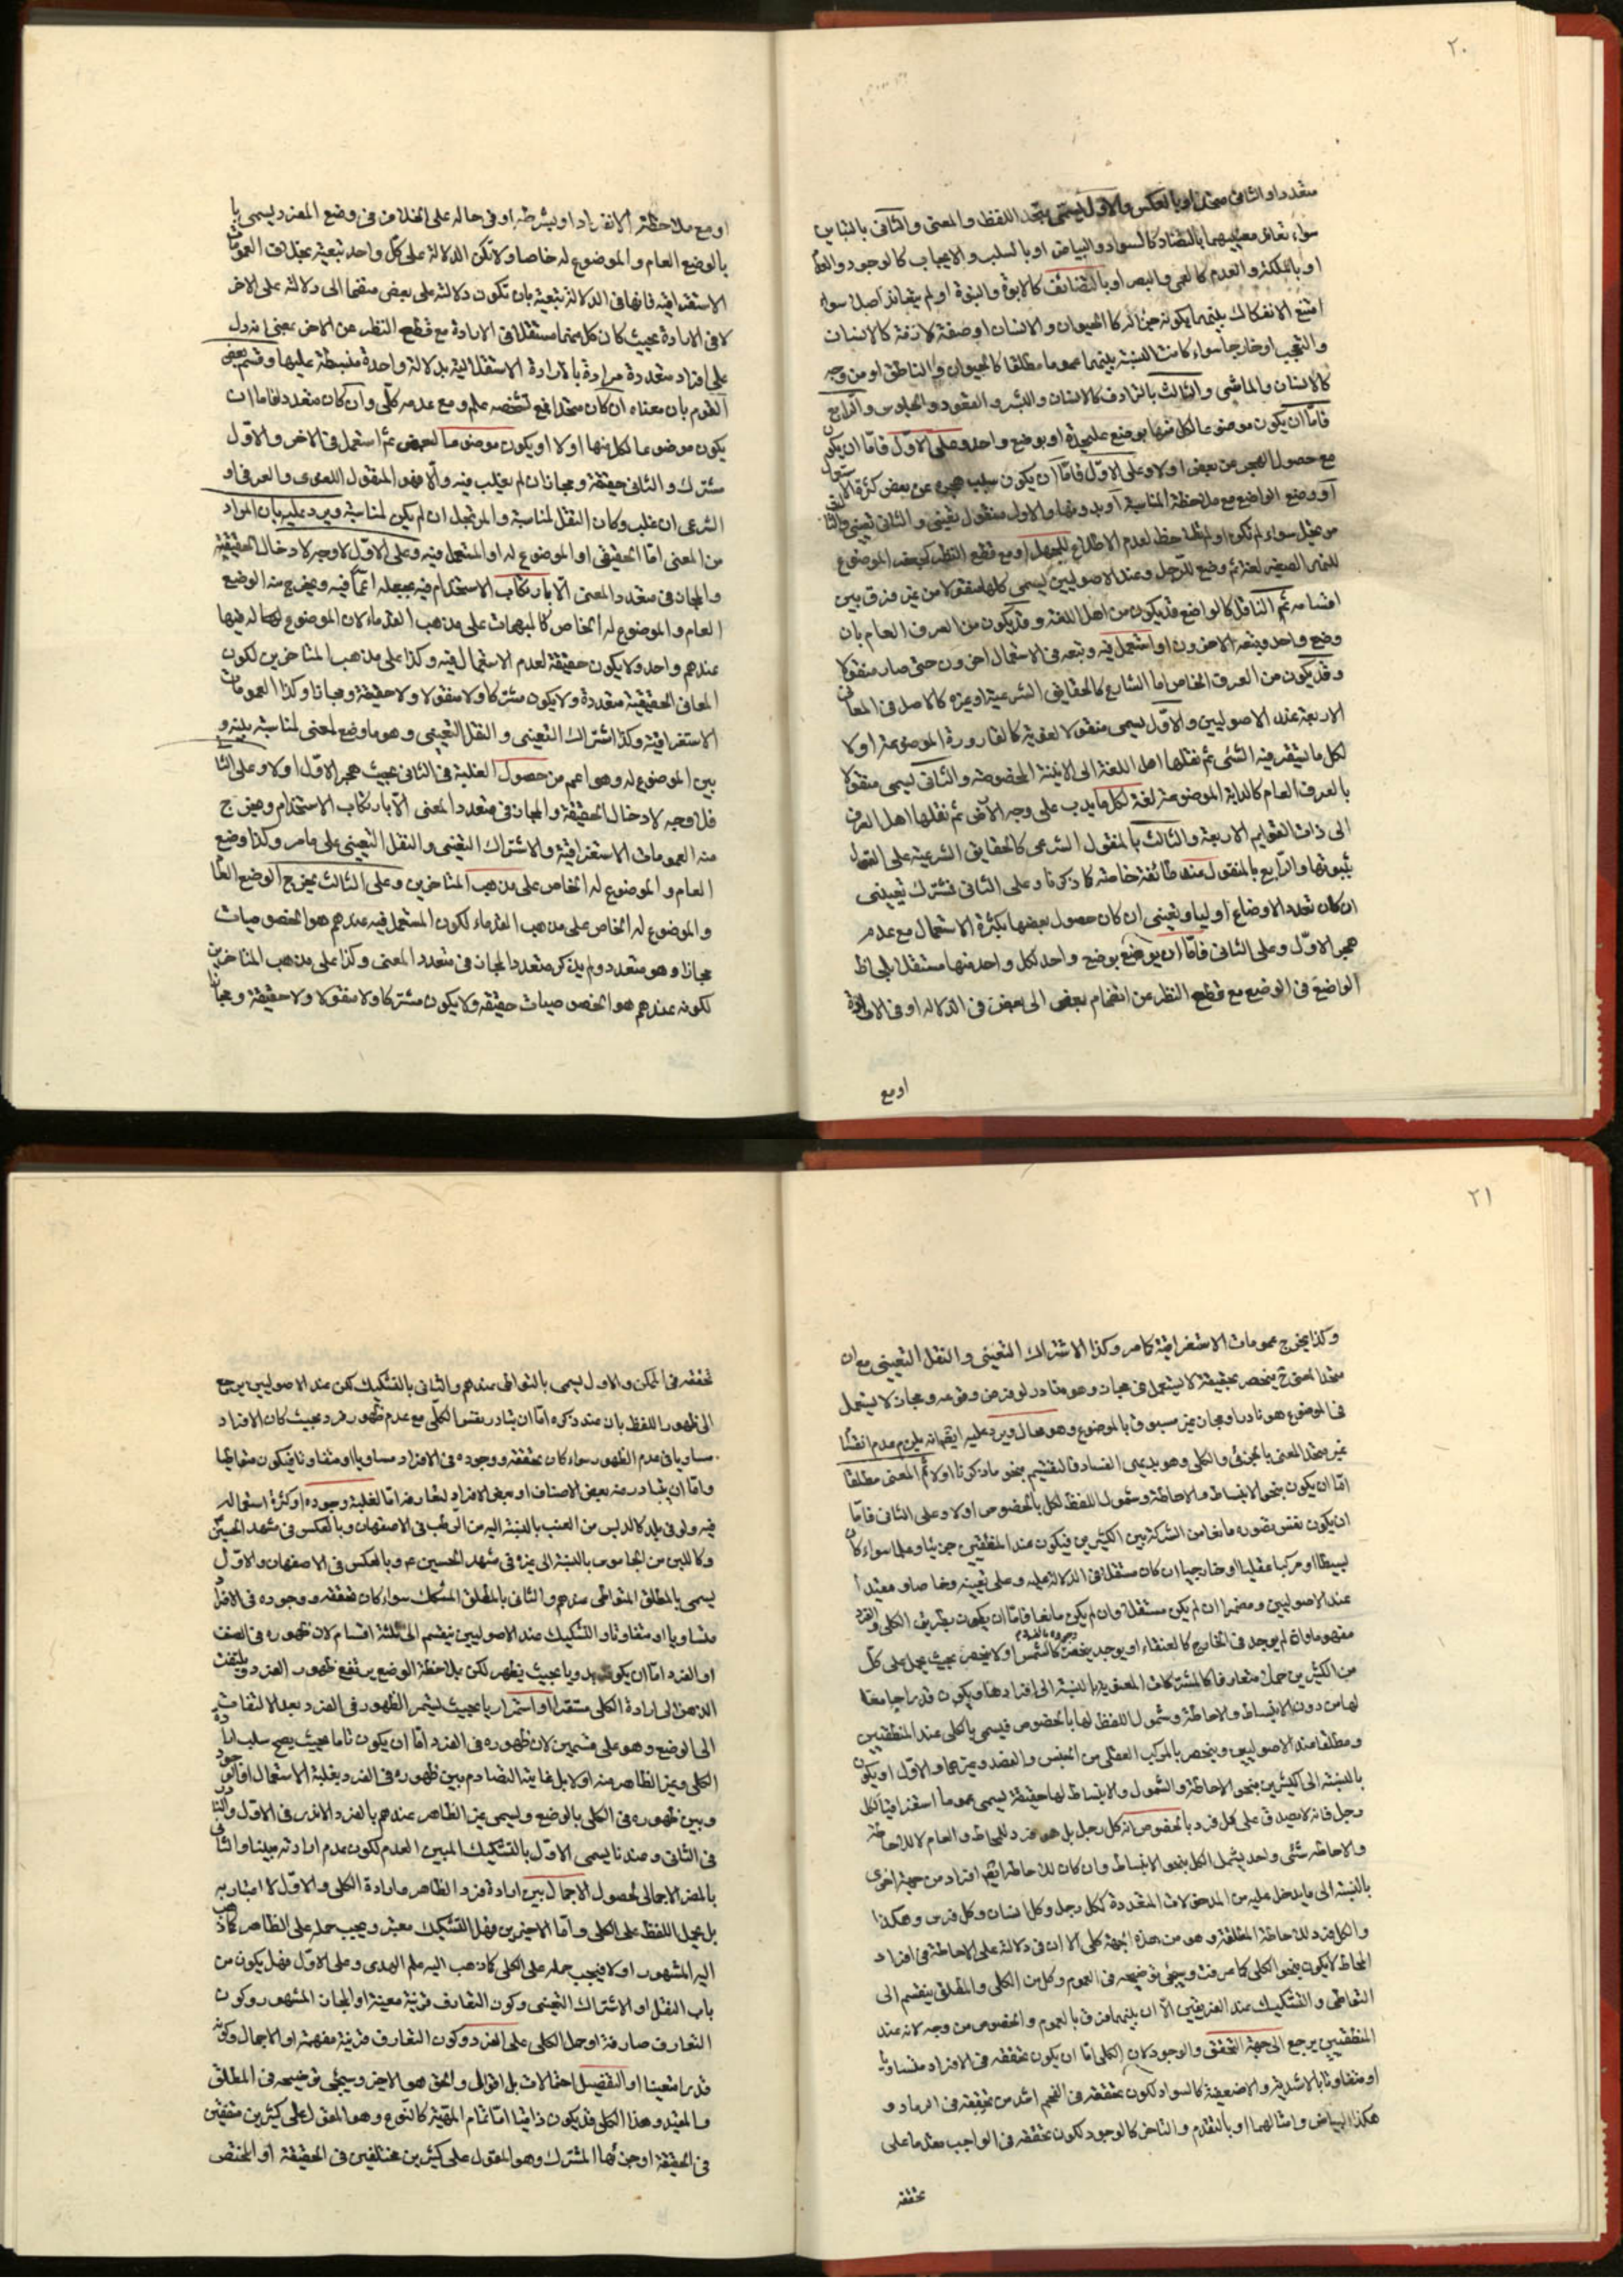 ٢٠
متعددا والثانى متحدا او بالعكس والاول يسمى بمتحد اللفظ والمعنى والثانى بالمتباين
سواء تعاند معنييهما بالتضاد كالسواد والبياض او بالسلب والايجاب كالوجود والعدم
او بالملكة والعدم كالعمى والبصر او بالتضائف كالابوة والبنوة او لم يتعاندا اصلا سواء
امتنع الانفكاك بينهما بكونه جزءا له كالحيوان والانسان او صفة لازمة كالانسان
والتعجب او خارجا سواء كانت النسبة بينهما عموما مطلقا كالحيوان والناطق او من وجه
كالانسان والماشى والثالث بالترادف كالانسان والبشر والقعود والجلوس والرابع
فاما ان يكون موضوعا لكل منها بوضع عليحدة او بوضع واحد وعلى الاول فاما ان يكون
مع حصول الهجر عن بعض اولا وعلى الاول فاما ان يكون سبب هجره عن بعض كثرة الاستعمال
او وضع الواضع مع ملاحظة المناسبة او بدونها والاول منقول تعينى والثانى تعيينى والثالث
مرتجل سواء لم تكن او لم تلاحظ لعدم الاطلاع للجهل او مع قطع النظر كجعفر الموضوع
للنهر الصغير لغة ثم وضع للرجل وعند الاصوليين يسمى كلها منقولا من غير فرق بين
اقسامه ثم الناقل كالواضع قد يكون من اهل اللغة وقد يكون من العرف العام بان
وضع واحد وتبعه الاخرون او استعمل فيه وتبعه فى الاستعمال اخرون حتى صار منقولا
وقد يكون من العرف الخاص اما الشارع كالحقايق الشرعية او غيره كالاصل فى المعانى
الاربعة عند الاصوليين والاول يسمى منقولا لغوية كالقارورة الموضوعة اولا
لكل ما يستقر فيه الشئ ثم نقلها اهل اللغة الى الانية المخصوصة والثانى يسمى منقولا
بالعرف العام كالدابة الموضوعة لغة لكل ما يدب على وجه الارض ثم نقلها اهل العرف
الى ذات القوايم الاربعة والثالث بالمنقول الشرعى كالحقايق الشرعية على القول
بثبوتها والرابع بالمنقول عند طائفة خاصة كما ذكرنا وعلى الثانى فمشترك تعيينى
ان كان تعدد الاوضاع اوليا وتعينى ان كان حصول بعضها بكثرة الاستعمال مع عدم
هجر الاول وعلى الثانى فاما ان يوضع بوضع واحد لكل واحد منها مستقلا بلحاظ
الواضع فى الوضع مع قطع النظر عن انضمام بعض الى بعض فى الدلالة او فى الارادة
او مع
او مع ملاحظة الانفراد او بشرطه او فى حاله على الخلاف فى وضع المفرد يسمى با
بالوضع العام والموضوع له خاصا ولا تكن الدلالة على كل واحد تبعية بخلاف العمومات
الاستغراقيه فانها فى الدلالة تبعية بان تكون دلالته على بعض منضما الى دلالته على الاخر
لا فى الارادة بحيث كان كل منها مستقلا فى الارادة مع قطع النظر عن الاخر بمعنى انه دل
على افراد متعددة مرادة بالارادة الاستقلالية بدلالة واحدة منبسطة عليها وقسم بعض
القوم بان معناه ان كان متحدا فمع تشخصه علم ومع عدمه كلى وان كان متعددا فاما ان
يكون موضوعا لكل منها اولا او يكون موضوعا لبعض ثم استعمل فى الاخر والاول
مشترك والثانى حقيقة ومجاز ان لم يغلب فيه والا فهو المنقول اللغوى والعرفى او
الشرعى ان غلب وكان النقل لمناسبة والمرتجل ان لم يكن لمناسبة ويرد عليه بان المراد
من المعنى اما الحقيقى او الموضوع له او المستعمل فيه وعلى الاول لا وجه لادخال الحقيقة
والمجاز فى متعدد المعنى الا بارتكاب الاستخدام فيه بجعله اعما فيه ويخرج منه الوضع
العام والموضوع له الخاص كالمبهمات على مذهب القدماء لان الموضوع لهما له فيها
عندهم واحد ولا يكون حقيقة لعدم الاستعمال فيه وكذا على مذهب المتاخرين لكون
المعانى الحقيقية متعددة ولا يكون مشتركا ولا منقولا ولا حقيقة ومجازا وكذا العمومات
الاستغراقية وكذا اشتراك التعينى والنقل التعينى وهو ما وضع لمعنى لمناسبة بينه و
بين الموضوع له وهو اعم من حصول الغلبة فى الثانى بحيث هجر الاول اولا وعلى الثا
فلا وجه لادخال الحقيقة والمجاز فى متعدد المعنى الا بارتكاب الاستخدام ويخرج
منه العمومات الاستغراقية والاشتراك التعينى والنقل التعينى على ما مر وكذا وضع
العام والموضوع له الخاص على مذهب المتاخرين وعلى الثالث يخرج الوضع العا
والموضوع له الخاص على مذهب القدماء لكون المستعمل فيه عندهم هو الخصوصيات
مجازا وهو متعدد ولم يذكر متعدد المجاز فى متعدد المعنى وكذا على مذهب المتاخرين
لكونه عندهم هو الخصوصيات حقيقه ولا يكون مشتركا ولا منقولا ولا حقيقة ومجازا
٢١
وكذا يخرج عمومات الاستغراقية كما مر وكذا الاشتراك التعينى والنقل التعينى مع ان
متحد المعنى ح ينحصر بحقيقة لا يستعمل فى مجاز وهو نادر لو فرض وقوعه ومجاز لا يستعمل
فى الموضوع هو نادر او مجاز غير مسبوق بالموضوع وهو محال ويرد عليه ايضا انه يلزم عدم انقسام
غير متحد المعنى بالجزئى والكلى وهو بديهى الفساد فالتقسيم بنحو ما ذكرنا اولا ثم المعنى مطلقا
اما ان يكون بنحو الانبساط والاحاطة وشمول اللفظ لكل بالخصوص اولا وعلى الثانى فاما
ان يكون نفس تصوره مانعا من الشركة بين الكثيرين فيكون عند المنطقيين جزئيا وعلما سواء كان
بسيطا او مركبا عقليا او خارجيا ان كان مستقلا فى الدلالة عليه وعلى تعيينه وخاصا ومقيدا
عند الاصوليين ومضمرا ان لم يكن مستقلا وان لم يكن مانعا فاما ان يكون بطريق الكلى والفرد
مفهوما واذا لم يوجد فى الخارج كالعنقاء او يوجد ينحصر كالشمس او لا ينحصر بحيث يحمل على كل
من الكثيرين حملا متعارفا كالمشتركات المعنوية بالنسبة الى افرادها ويكون قدرا جامعا
لها من دون الانبساط والاحاطة وشمول اللفظ لها بالخصوص فيسمى بالكلى عند المنطقيين
ومطلقا عند الاصوليين وينحصر بالمركب العقلى من الجنس والفصل وغيرهما والاول او يكون
بالنسبة الى الكثيرين بنحو الاحاطة والشمول والانبساط لها حقيقة يسمى عموما استغراقيا ككل
رجل فانه لا يصدق على كل فرد بالخصوص انه كل رجل بل هو فرد للمحاط والعام للاحاطة
والاحاطه شئى واحد يشمل الكل بنحو الانبساط وان كان للاحاطه ايضا افراد من جهة اخرى
بالنسبة الى ما يدخل عليه من المدخولات المتعددة ككل رجل وكل انسان وكل فرس وهكذا
والكل فرد للاحاطة المطلقة وهو من هذه الجهة كلى الا ان فى دلالته على الاحاطة فى افراد
المحاط لا يكون بنحو الكلى كما عرفت ويجئ توضيحه فى العموم وكل من الكلى والمطلق ينقسم الى
التواطى والتشكيك عند الفريقين الا ان بينهما فرق بالعموم والخصوص من وجه لانه عند
المنطقيين يرجع الى جهة التحقق والوجود لان الكلى اما ان يكون تحققه فى الافراد متساويا
او متفاوتا بالاشدية والاضعفية كالسواد لكون تحققه فى الفحم اشد من تحققه فى الرماد و
هكذا البياض وامثالهما او بالتقدم والتاخر كالوجود لكون تحققه فى الواجب مقدما على
تحققه
تحققه فى الممكن والاول يسمى بالتواطى عندهم والثانى بالتشكيك لكن عند الاصوليين يرجع
الى ظهور اللفظ بان عند ذكره اما ان يتبادر نفس الكلى مع عدم ظهور فرد بحيث كان الافراد
مساويا فى عدم الظهور سواء كان تحققه ووجوده فى الافراد مساويا او متفاوتا فيكون متواطيا
واما ان يتبادر منه بعض الاصناف او بعض الافراد لتعارفه اما لغلبة وجوده او كثرة استعماله
فيه ولو فى بلد كالدبس من العنب بالنسبة اليه من الرطب فى الاصفهان وبالعكس فى مشهد الحسين
وكاللبن من الجاموس بالنسبة الى غيره فى مشهد الحسين ع وبالعكس فى الاصفهان والاول
يسمى بالمطلق المتواطى عندهم والثانى بالمطلق المشكك سواء كان تحققه ووجوده فى الافراد
متساويا او متفاوتا والتشكيك عند الاصوليين ينقسم الى ثلثة اقسام لان ظهوره فى الصنف
او الفرد اما ان يكون بدويا بحيث يظهر لكن بملاحظة الوضع يرتفع ظهور الفرد ويلتفت
الذهن الى ارادة الكلى مستقرا او استمراريا بحيث يستمر الظهور فى الفرد بعد الالتفات
الى الوضع وهو على قسمين لان ظهوره فى الفرد اما ان يكون تاما بحيث يصح سلب ارادة
الكلى وغير الظاهر منه اولا بل غايته التصادم بين ظهوره فى الفرد بغلبة الاستعمال او الوجود
وبين ظهوره فى الكلى بالوضع ويسمى غير الظاهر عندهم بالفرد والاندر فى الاول والنادر
فى الثانى وعندنا يسمى الاول بالتشكيك المبين العدم لكون عدم ارادته مبينا والثانى
بالمضر الاجمالى لحصول الاجمال بين ارادة فرد الظاهر وارادة الكلى والاول لا اعتبار به
بل يحمل اللفظ على الكلى واما الاخيرين فهل التشكيك معتبر ويجب حمله على الظاهر كما ذهب
اليه المشهور اولا فيجب حمله على الكلى كما ذهب اليه علم الهدى وعلى الاول فهل يكون من
باب النقل او الاشتراك التعينى وكون التعارف قرينة معينة او المجاز المشهور وكون
التعارف صارفة او حمل الكلى على الفرد وكون التعارف قرينة مفهمة او الاجمال وكونه
قدرا متيقنا او التفصيل احتمالات بل اقوال والحق هو الاخير وسيجئ توضيحه فى المطلق
والمقيد وهذا الكلى قد يكون ذاتيا اما تمام المهية كالنوع وهو المقول على كثيرين متفقين
فى الحقيقة او جزئها المشترك وهو المقول على كثيرين مختلفين فى الحقيقة او المختص